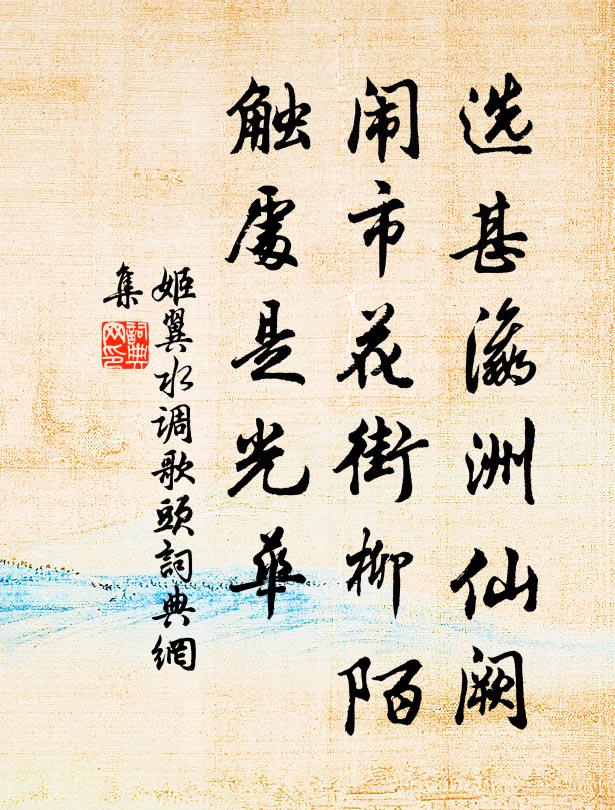 选甚瀛洲仙阙
闹市花街柳陌
触处是光华
姬翼水调歌头詞典網
集
詞典网印